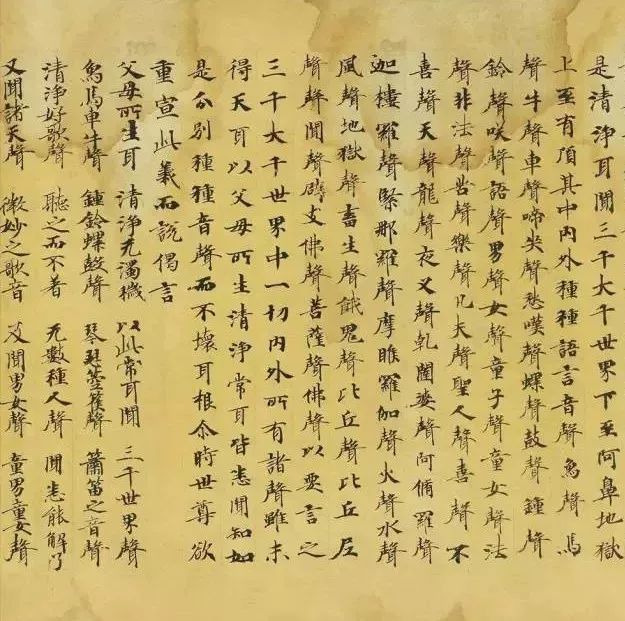 是清淨耳聞三千大千世界下至阿鼻地獄
上至有頂其中內外種種語言音聲象聲馬
聲牛聲車聲啼哭聲愁嘆聲螺聲鼓聲鍾聲
鈴聲咲聲語聲男聲女聲童子聲童女聲法
聲非法聲苦聲樂聲凡夫聲聖人聲喜聲不
喜聲天聲龍聲夜叉聲乹闥婆聲阿脩羅聲
迦樓羅聲緊那羅聲摩睺羅伽聲火聲水聲
風聲地獄聲畜生聲餓鬼聲比丘聲比丘尼
聲聲聞聲辟支佛聲菩薩聲佛聲以要言之
三千大千世界中一切內外所有諸聲雖未
得天耳以父母所生清淨常耳皆悉聞知如
是分別種種音聲而不壞耳根尒時世尊欲
重宣此義而說偈言
父母所生耳 清淨无濁穢 以此常耳聞 三千世界聲
象馬車牛聲 鍾鈴螺鼓聲 琴瑟箜篌聲 簫笛之音聲
清淨好歌聲 聽之而不著 无數種人聲 聞悉能解了
又聞諸天聲 微妙之歌音 及聞男女聲 童男童女聲